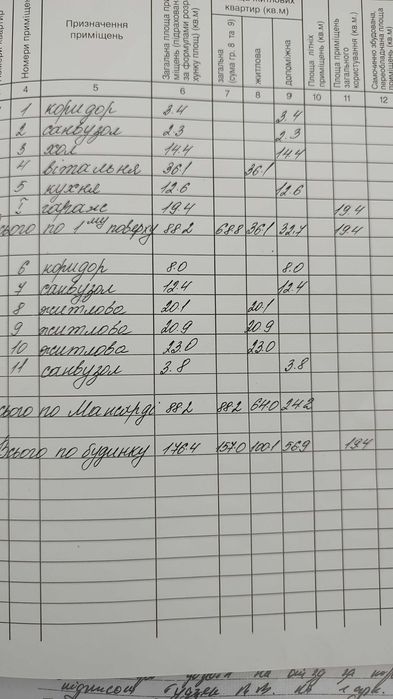 квартир (кв.м)
Номери приміщень
Призначення приміщень
Загальна площа приміщень (підрахована за формулами розрахунку площ) (кв.м)
загальна (сума гр. 8 та 9)
житлова
допоміжна
Площа літніх приміщень (кв.м)
Площа приміщень загального користування (кв.м)
Самочинно збудована, переобладнана площа
4 5 6 7 8 9 10 11 12
1 коридор 3.4 3.4
2 санвузол 2.3 2.3
3 хол 14.4 14.4
4 вітальня 36.1 36.1
5 кухня 12.6 12.6
I гараж 19.4 19.4
сього по 1му поверху 88.2 68.8 36.1 32.7 19.4
6 коридор 8.0 8.0
7 санвузол 12.4 12.4
8 житлова 20.1 20.1
9 житлова 20.9 20.9
10 житлова 23.0 23.0
11 санвузол 3.8 3.8
сього по Мансарді 88.2 88.2 64.0 24.2
Всього по будинку 176.4 157.0 100.1 56.9 19.4
підписом